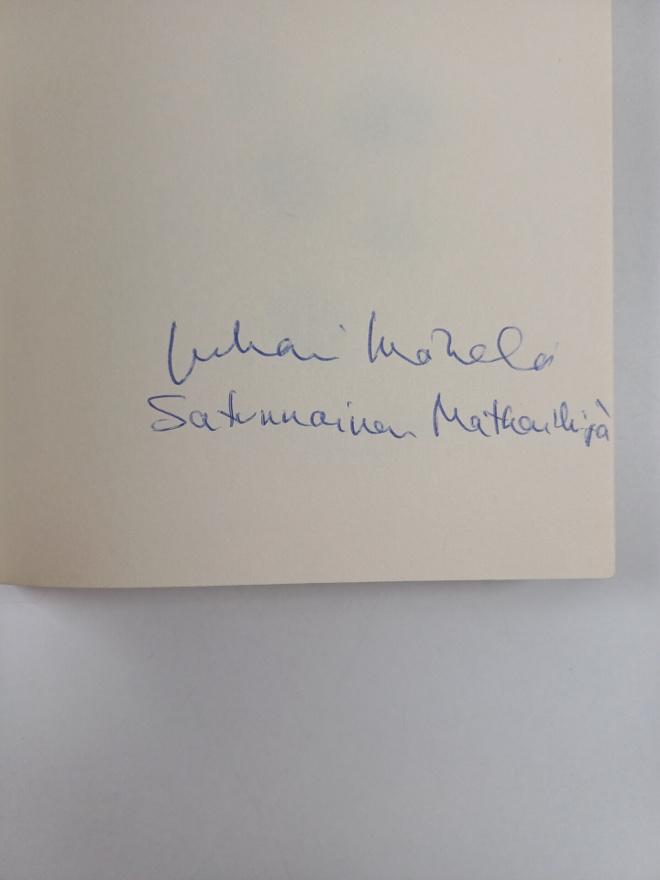 Juhani Mäkelä
Satunnainen Matkailija